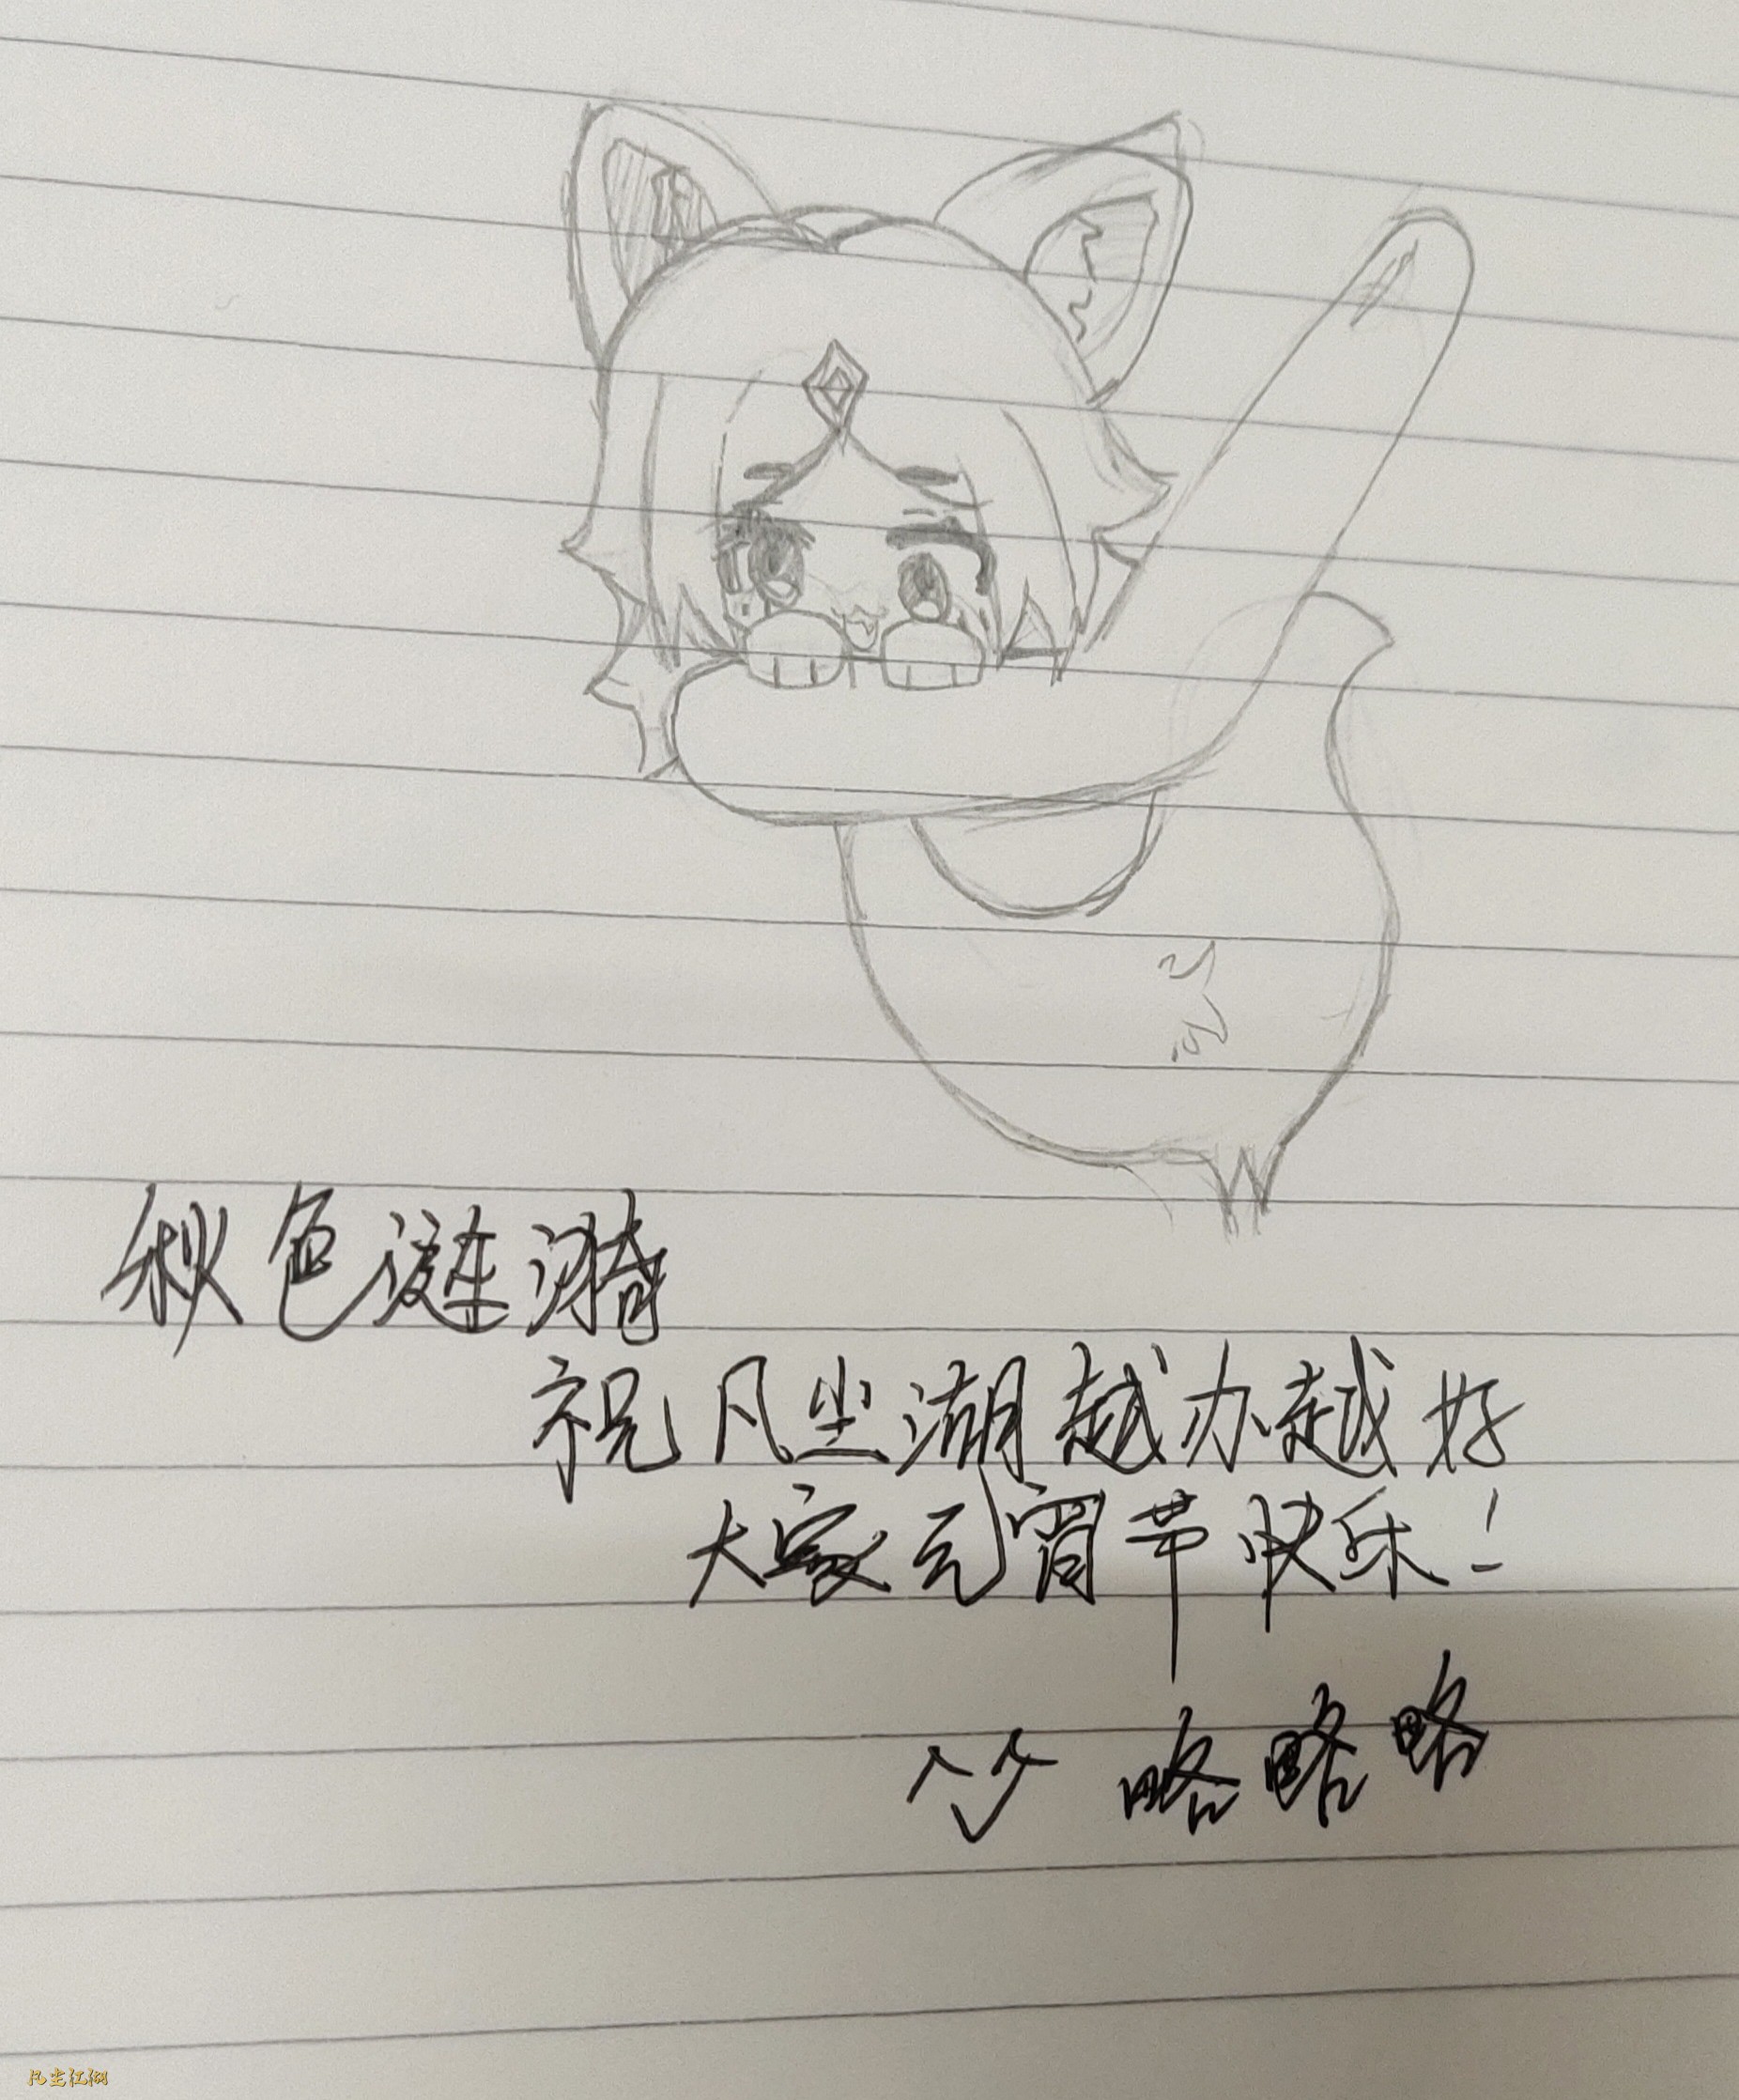 秋色涟漪
祝凡尘湖越办越好
大家元宵节快乐!
略略略
凡尘江湖